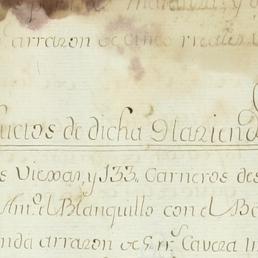 arrazon de cinco rreales
uctos de dicha Hazien
s Viexas, y 133. Carneros des
Am.º el Blanquillo con el Be
nda arrazon de 6 rr.s Caveza In